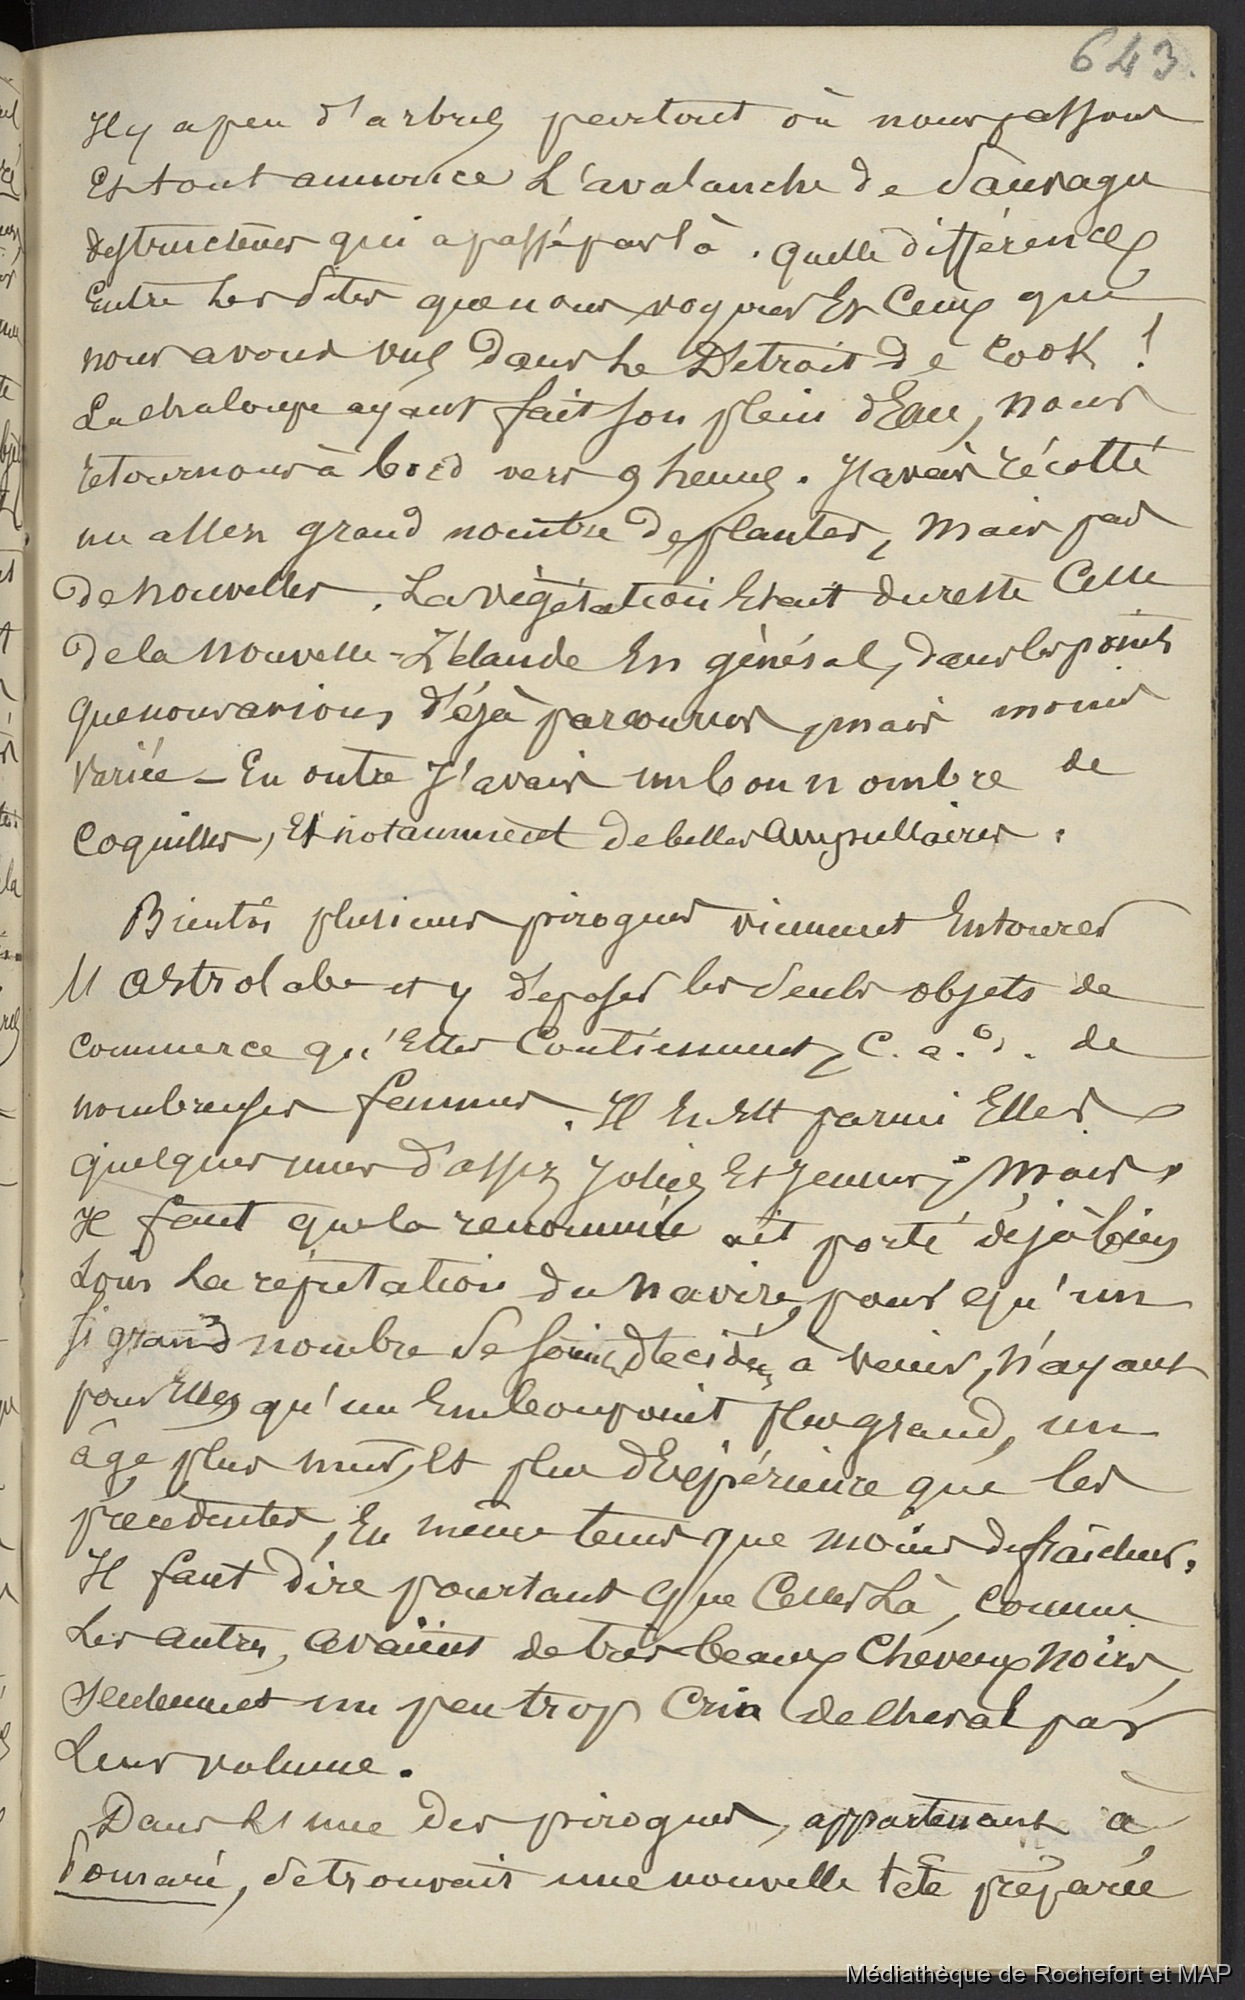 643.
Il y a peu d'arbres partout où nous passons
Et tout annonce L'avalanche de Sauvages
destructeurs qui a passé par là. Quelle différence
Entre Les sites que nous voyons Et Ceux que
nous avons vus Dans Le Détroit de Cook !
La chaloupe ayant fait son plein d'Eau, nous
retournons à bord vers 9 heures. J'avais récolté
un assez grand nombre de plantes, mais pas
de nouvelles. La végétation Etant du reste Celle
de la Nouvelle-Zélande En général, dans les points
que nous avions déjà parcourus, mais moins
variée _ En outre J'avais un bon nombre de
Coquilles, Et notamment de belles Ampullaires.
Bientôt plusieurs pirogues viennent Entourer
l'Astrolabe et y déposer les Seuls objets de
commerce qu'Elles Contiennent, C. a. d. de
nombreuses femmes. Il En Est parmi Elles
quelques unes d'assez Jolies Et Jeunes; Mais
Il faut que la renommée ait porté déjà bien
Loin La réputation du Navire, pour qu'un
si grand nombre se soient décidées à venir, N'ayant
pour Elles qu'un Embonpoint plus grand, un
âge plus mur, Et plus d'Expérience que les
précédentes, En même tems que moins de fraîcheur.
Il faut dire pourtant que Celles Là, comme
Les autres, avaient de très beaux Cheveux Noirs,
seulement un peu trop Crin de Cheval par
Leur volume.
Dans L'une des pirogues, appartenant à
Pomaré, se trouvait une nouvelle tête préparée
Médiathèque de Rochefort et MAP